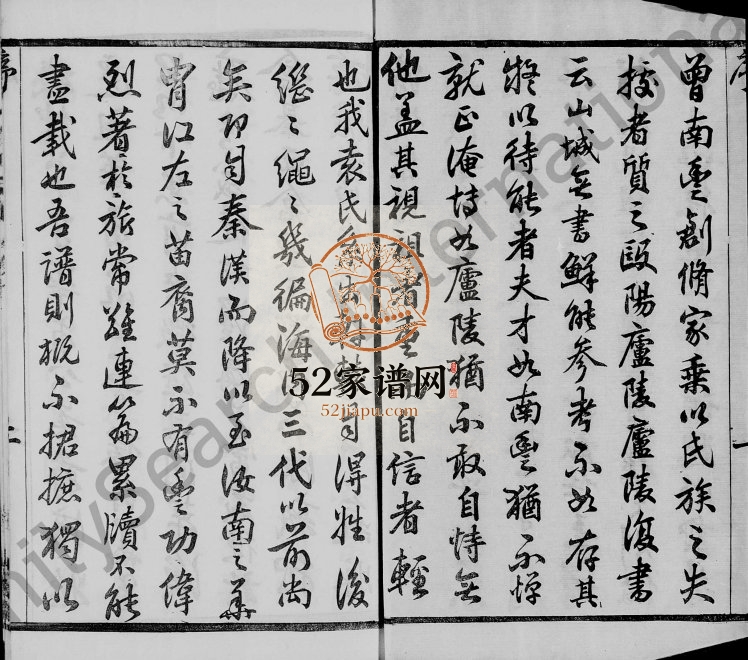 曾南豐創脩家乘以氏族之失
授者質之歐陽廬陵廬陵復書
云山城無書鮮能參考不如存其
疑以待能者夫才如南豐猶不憚
就正淹博如廬陵猶不敢自恃無
他蓋其視祖者重自信者輕
也我袁氏得姓後
繼繼繩繩幾徧海三代以前尚
矣即自秦漢而降以至汝南之華
胄江左之苗裔莫不有豐功偉
烈著於旂常雖連篇累牘不能
盡載也吾譜則概不捃摭獨以
序
二
序
一
52家谱网
52jiapu.com